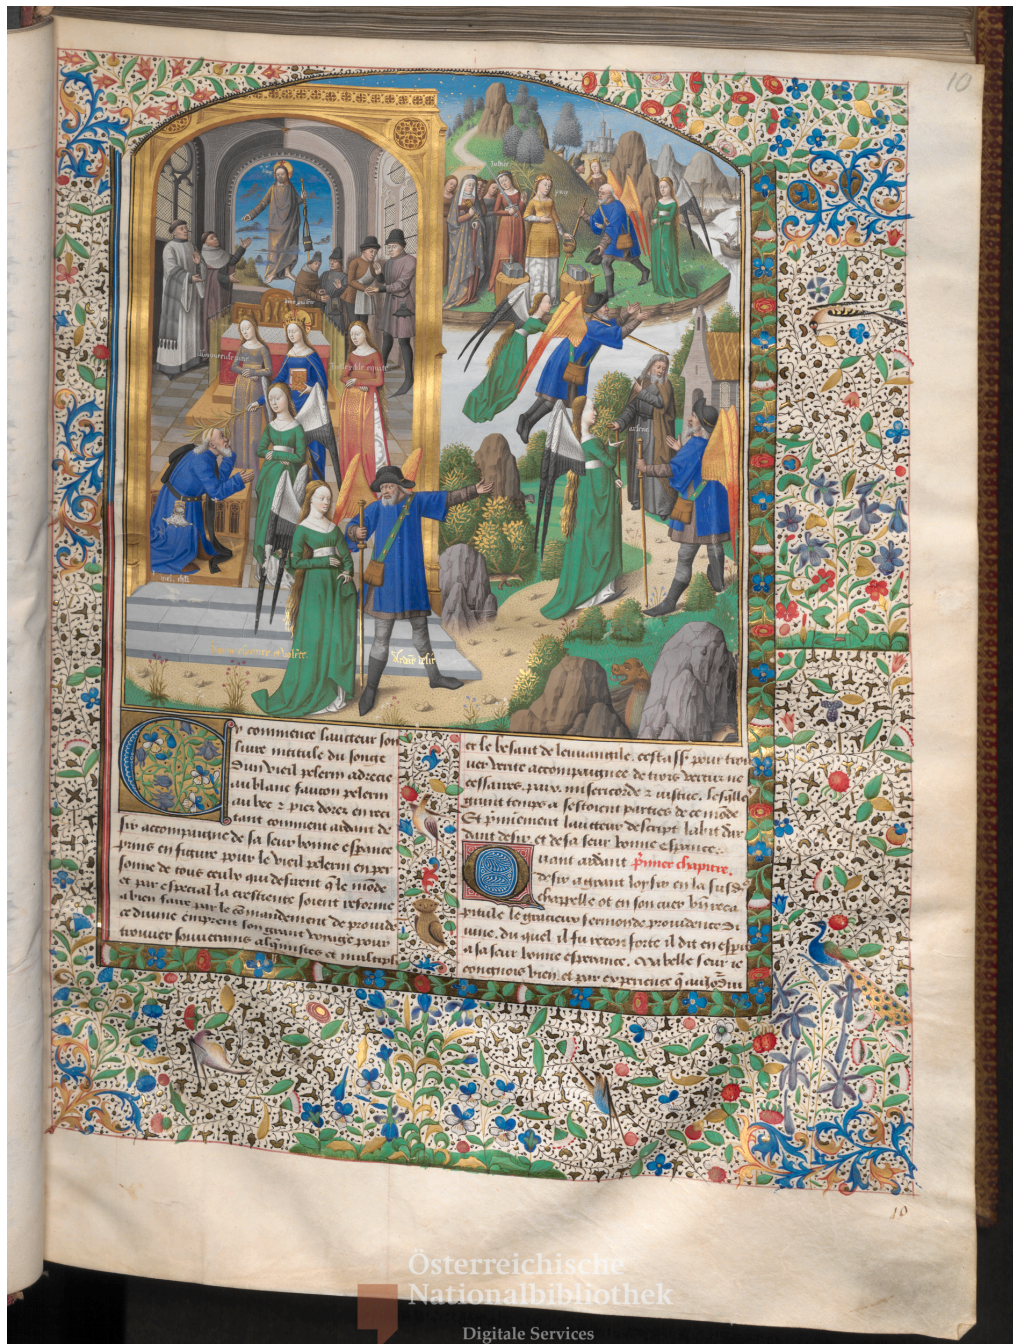 10
Justice
arsene
Cy commence laucteur son
liure intitule du songe
Dun vieil pelerin adrecant
au blanc faucon pelerin
au bec z piez dorez en reci
tant comment ardant de
sir accompaigne de sa seur bonne esperance
prins en figure pour le vieil pelerin en per
sonne de tous ceulx qui desirent q̄ le mōde
et par especial la crestiente soient reforme
a bien faire par le cōmandement de prouide
ce diuine emprent son grant voyage pour
trouuer souuerains alquimistes et multipl
er le besant de leuuangile. cestass pour trou
uer verite accompaignee de trois vertuz ne
cessaires. paix misericorde z iustice. lesqlles
grant temps a sestoient parties de ce mōde
Et p̄mierement laucteur descript labit dar
dant desir et de sa seur bonne esperance.
uant ardant p̄mier chapitre.
desir a grant loysir en la susd
chappelle et en son cuer bn̄ reca
pitule le gracieux sermon de prouidence di
uine. du quel il fu recon forte il dit en espir
a sa seur bonne esperance. Ma belle seur ie
congnois bien et par experience q̄
10
Österreichische
Nationalbibliothek
Digitale Services